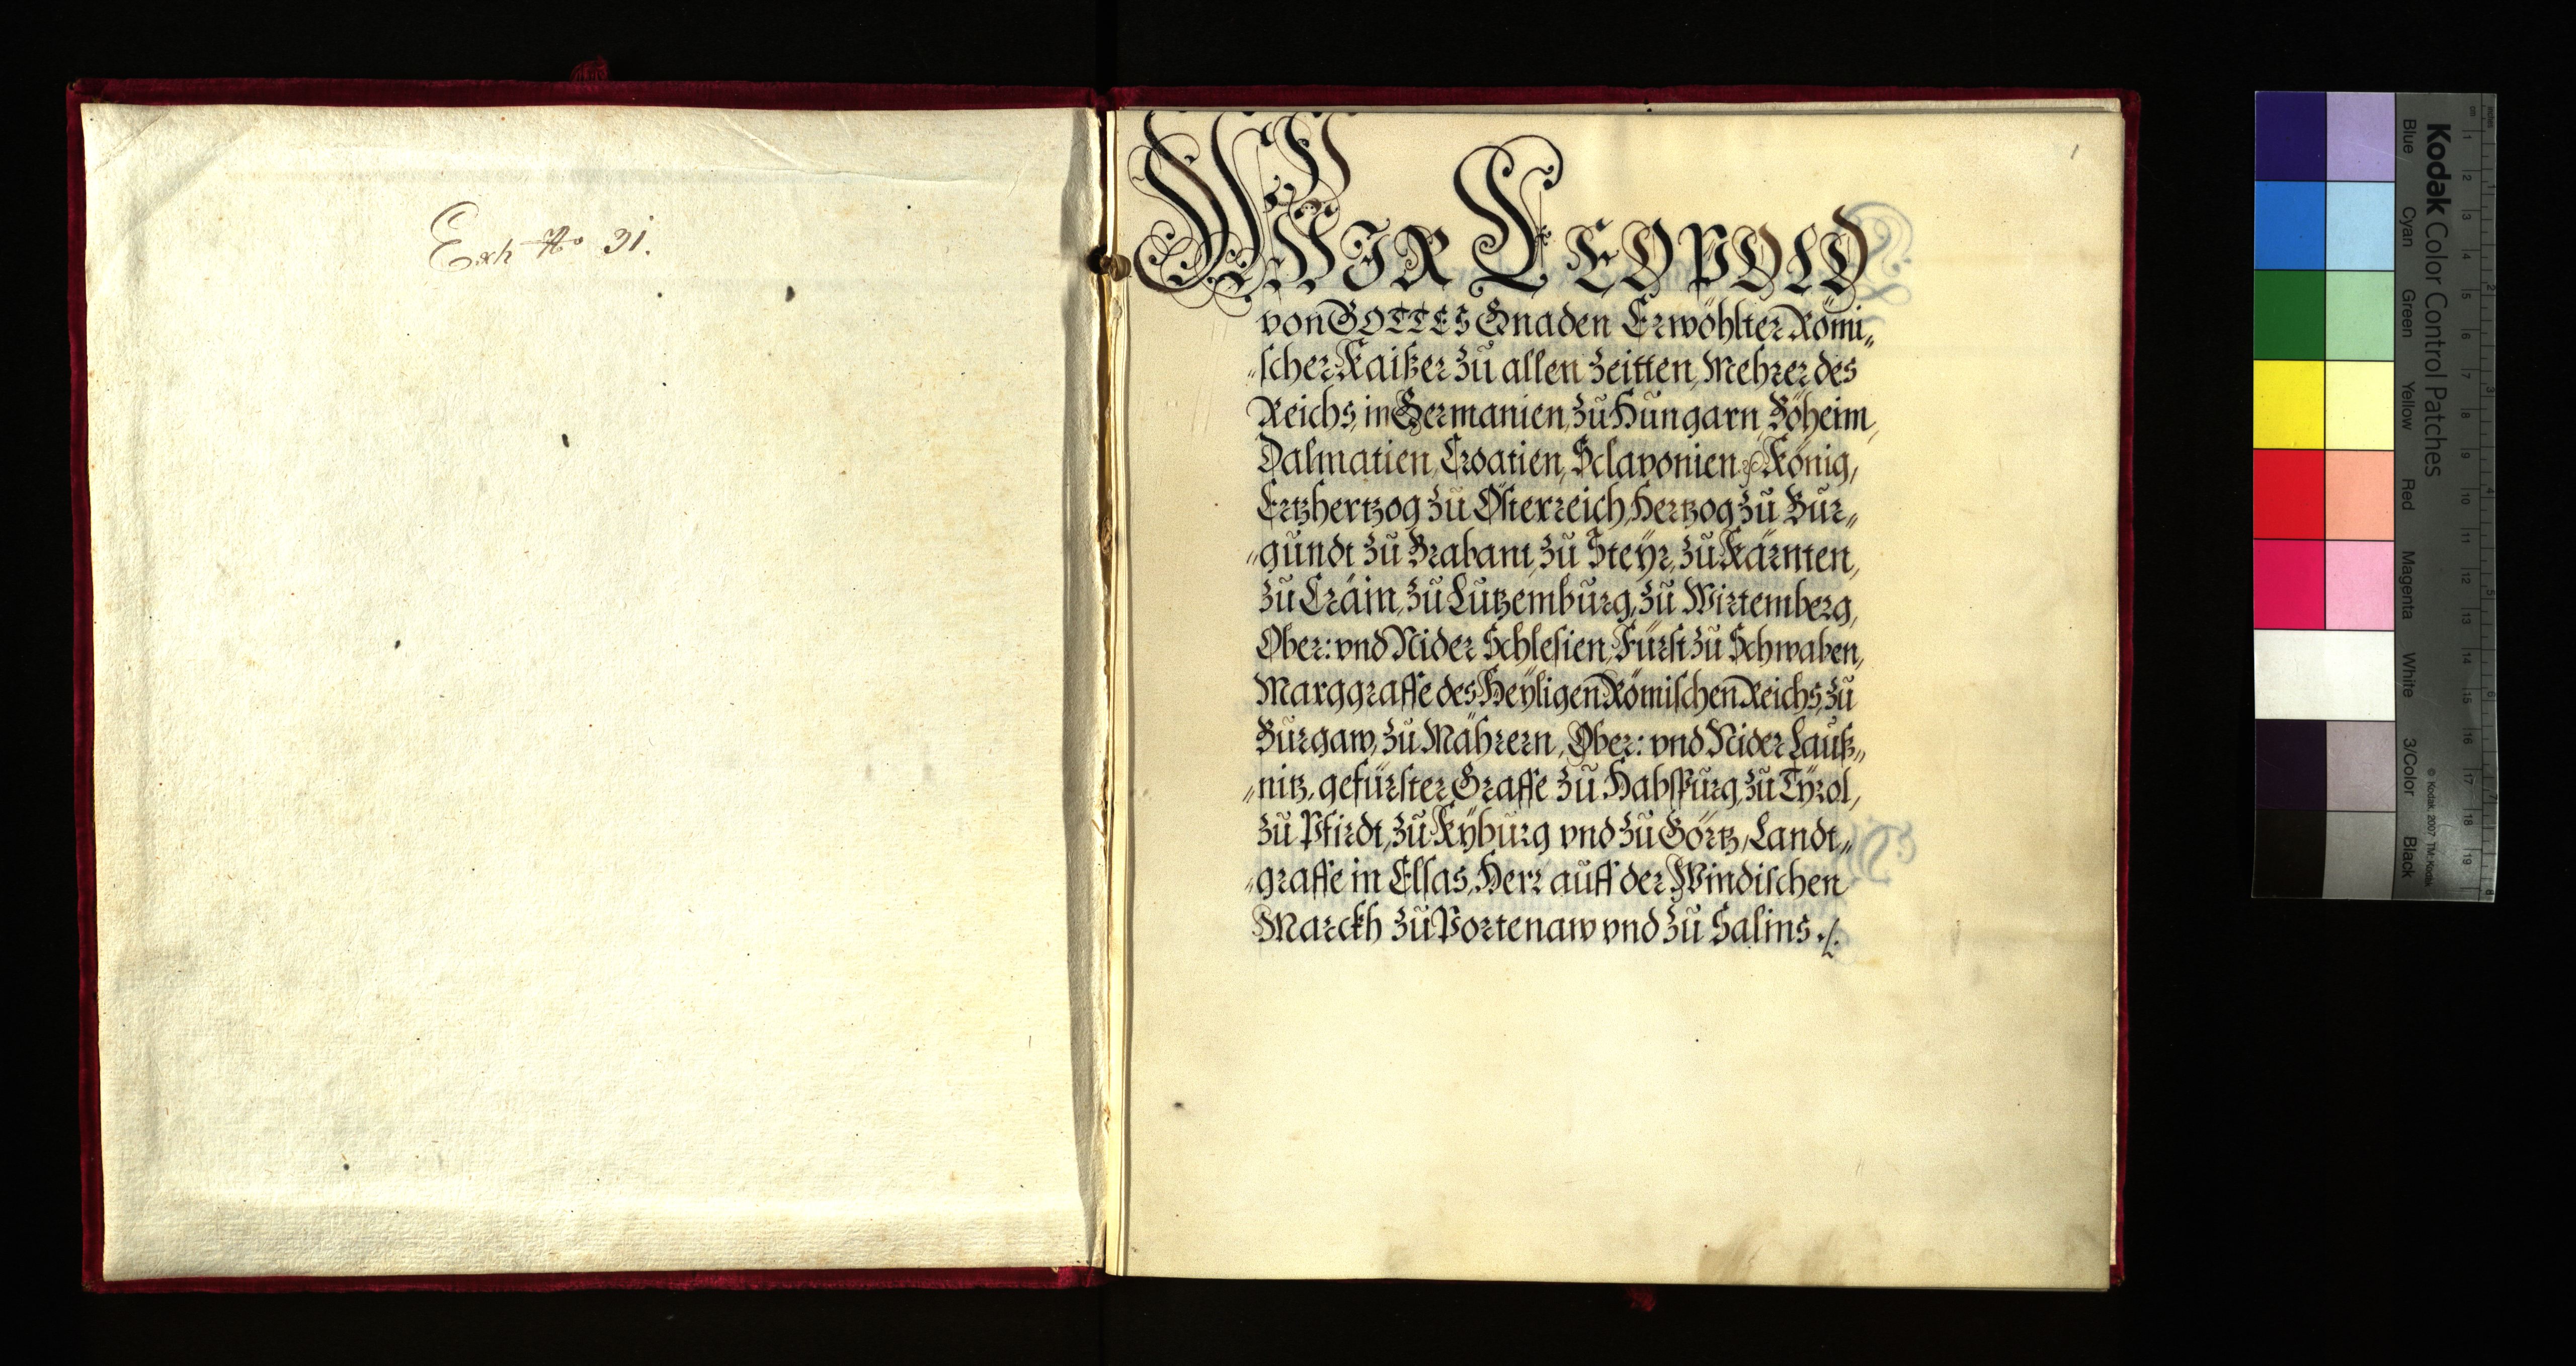 Exh No 31.
1
WIR LEOPOLD
von GOTTES Gnaden Erwöhlter Römi„
„scher Kaißer zu allen Zeitten, Mehrer des
Reichs, in Germanien, zu Hungarn, Böheim,
Dalmatien, Croatien, Sclavonien &c König,
Ertzhertzog zu Österreich, Hertzog zu Bur„
„gundt zu Brabant, zu Steÿr, zu Kärnten,
zu Crain, zu Lutzemburg, zu Wirtemberg,
Ober: vnd Nider Schlesien, Fürst zu Schwaben,
Marggraffe des Heÿligen Römischen Reichs, zu
Burgaw, zu Mährern, Ober: vnd Nider Lauß„
„nitz, gefürster Graffe zu Habspurg, zu Tÿrol,
zu Pfirdt, zu Kÿburg vnd zu Görtz, Landt„
„graffe in Elsas, Herr auff der Windischen
Marckh zu Portenaw vnd zu Salins ./.
Kodak Color Control Patches
Blue Cyan Green Yellow Red Magenta White 3/Color Black
© Kodak, 2007 TM: Kodak
inches 1 2 3 4 5 6 7 8
cm 1 2 3 4 5 6 7 8 9 10 11 12 13 14 15 16 17 18 19